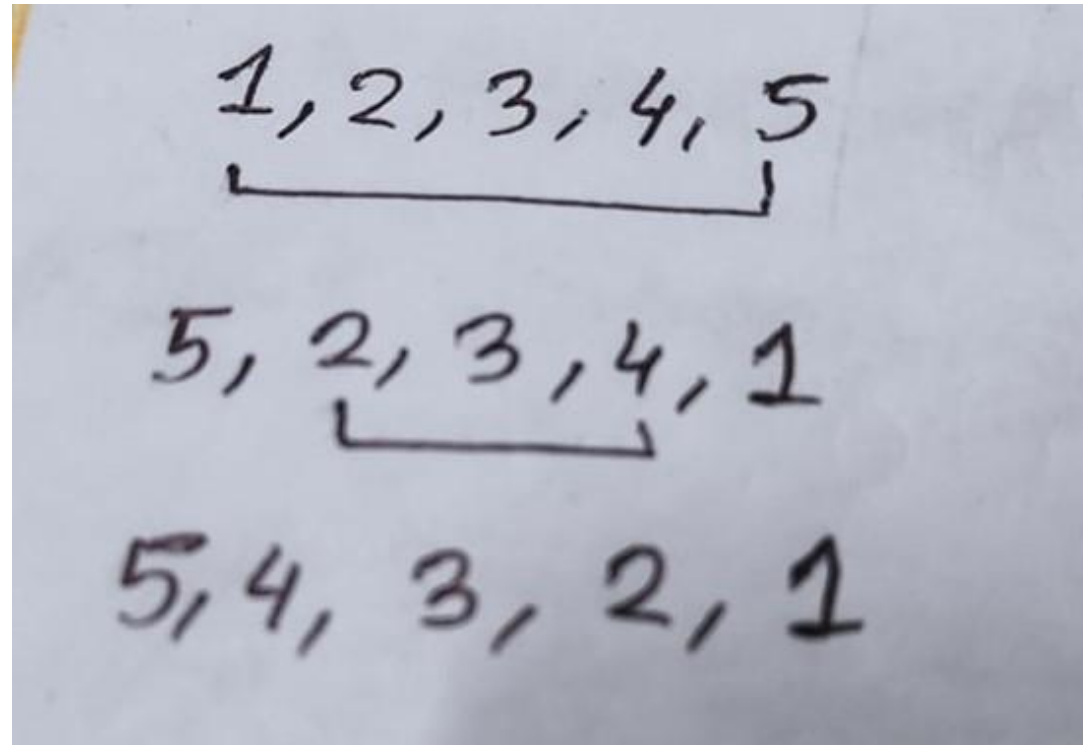 1, 2, 3, 4, 5
5, 2, 3, 4, 1
5, 4, 3, 2, 1